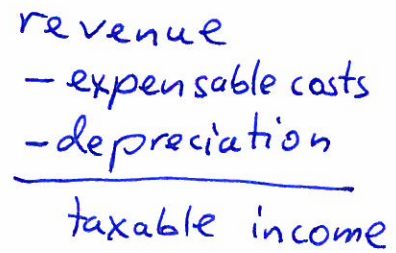 revenue
- expensable costs
- depreciation
taxable income